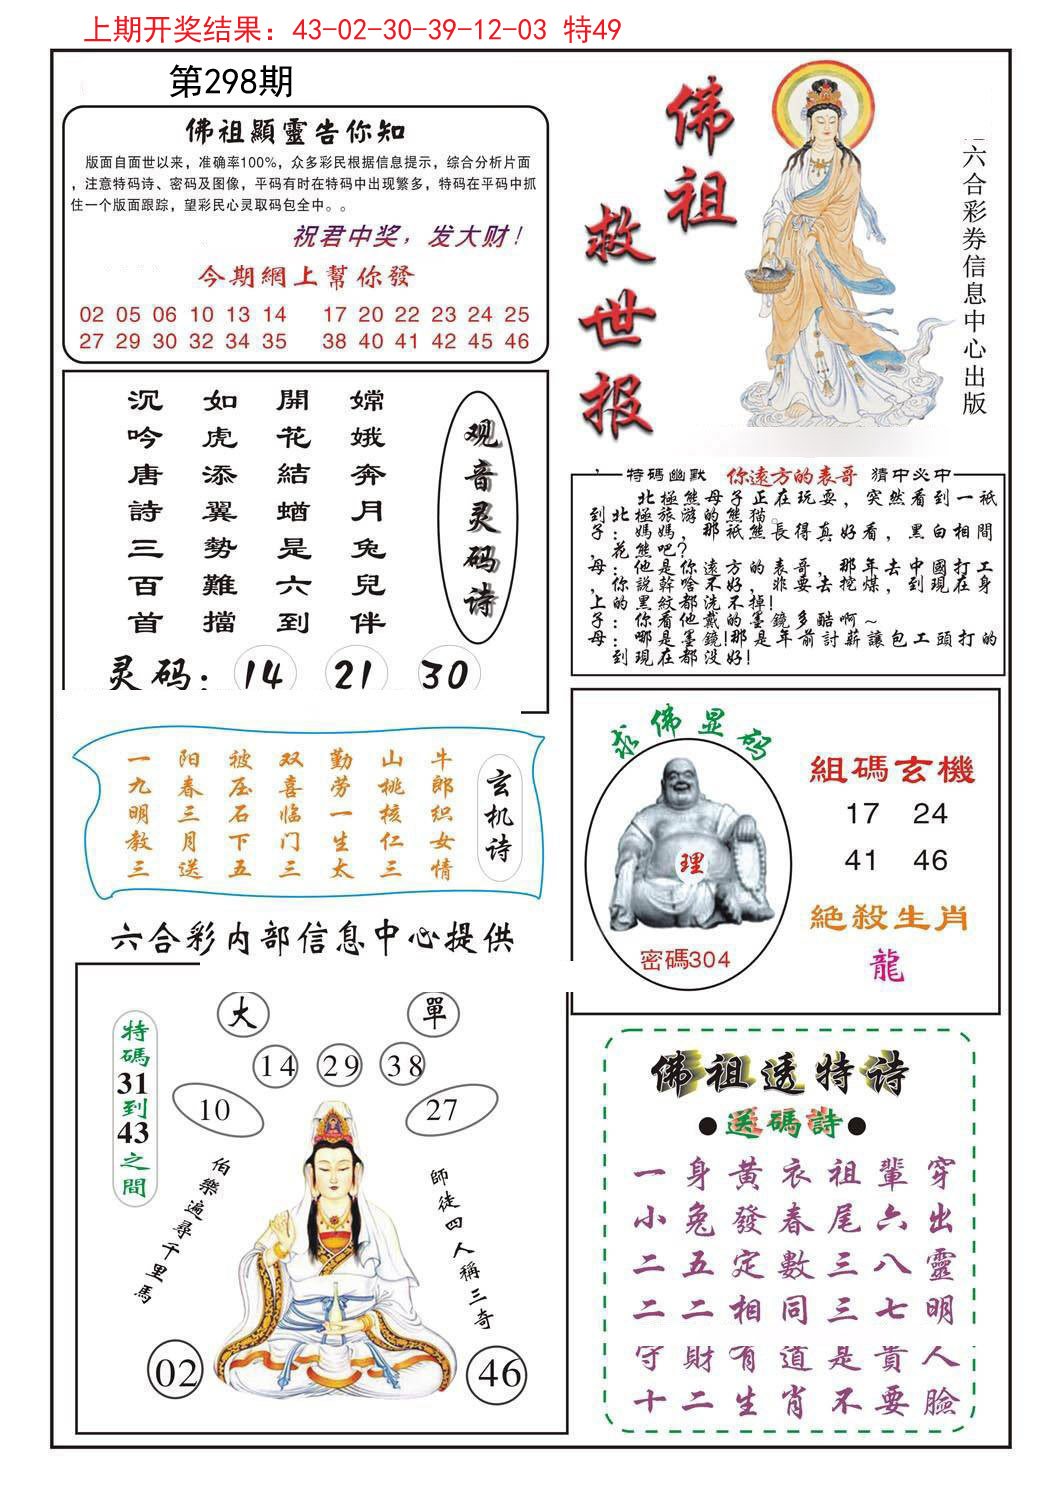 上期开奖结果：43-02-30-39-12-03 特49
第298期
佛祖顯靈告你知
版面自面世以来，准确率100%，众多彩民根据信息提示，综合分析片面
，注意特码诗、密码及图像，平码有时在特码中出现繁多，特码在平码中抓
住一个版面跟踪，望彩民心灵取码包全中。。
祝君中奖，发大财！
今期網上幫你發
02 05 06 10 13 14 17 20 22 23 24 25
27 29 30 32 34 35 38 40 41 42 45 46
佛祖
救世报
六合彩券信息中心出版
观音灵码诗
嫦娥奔月兔兒伴
開花結蝤是六到
如虎添翼勢難擋
沉吟唐詩三百首
灵码：14 21 30
特碼幽默 你遠方的表哥 猜中必中
北極熊母子正在玩耍，突然看到一祇
到北極旅游的熊猫。
子：媽媽，那祇熊長得真好看，黑白相間
，花熊吧？
母：他是你遠方的表哥，那年去中國打工
，你說幹啥不好，非要去挖煤，到現在身
上的黑紋都洗不掉！
子：你看他戴的墨鏡多酷啊～
母：哪是墨鏡！那是年前討薪讓包工頭打的
到現在都没好！
玄机诗
牛郎织女情
山桃核仁三
勤劳一生太
双喜临门三
被压石下五
阳春三月送
一九明教三
求佛显码
理
密碼304
組碼玄機
17 24
41 46
絶殺生肖
龍
六合彩内部信息中心提供
特碼31到43之間
大 單
14 29 38
10 27
伯樂遍尋千里馬
師徒四人稱三奇
02 46
佛祖透特诗
●送碼詩●
一身黄衣祖輩穿
小兔發春尾六出
二五定數三八靈
二二相同三七明
守財有道是貴人
十二生肖不要臉